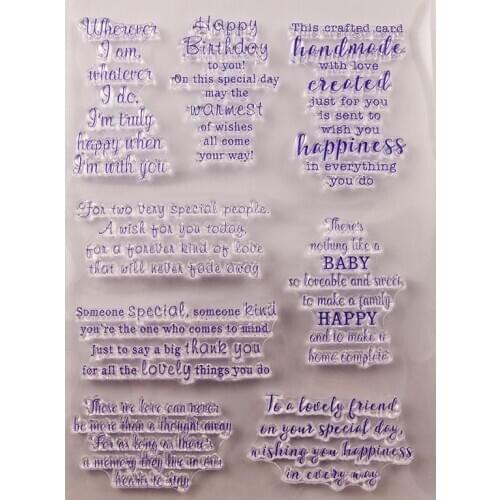 Wherever
I am,
whatever
I do.
I'm truly
happy when
I'm with you
Happy
Birthday
to you!
On this special day
may the
warmest
of wishes
all come
your way!
This crafted card
handmade
with love
created
just for you
is sent to
wish you
happiness
in everything
you do
For two very special people.
A wish for you today,
for a forever kind of love
that will never fade away
There's
nothing like a
BABY
so loveable and sweet,
to make a family
HAPPY
and to make a
home complete
Someone special, someone kind
you're the one who comes to mind.
Just to say a big thank you
for all the lovely things you do
Those we love can never
be more than a thought away
For as long as there's
a memory they live in our
hearts to stay
To a lovely friend
on your special day,
wishing you happiness
in every way